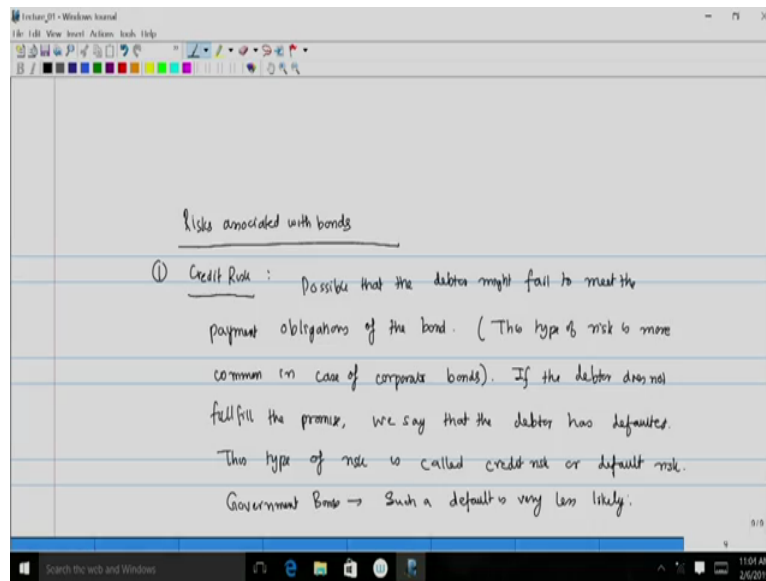 Lecture_01 - Windows Journal
File Edit View Insert Actions Tools Help
B I
Risks associated with bonds
① Credit Risk : Possible that the debtor might fail to meet the
payment obligations of the bond. (This type of risk is more
common in case of corporate bonds). If the debtor does not
fullfill the promise, we say that the debtor has defaulted.
This type of risk is called credit risk or default risk.
Government Bonds → Such a default is very less likely.
9/9
4
Search the web and Windows
11:04 AM
2/6/201